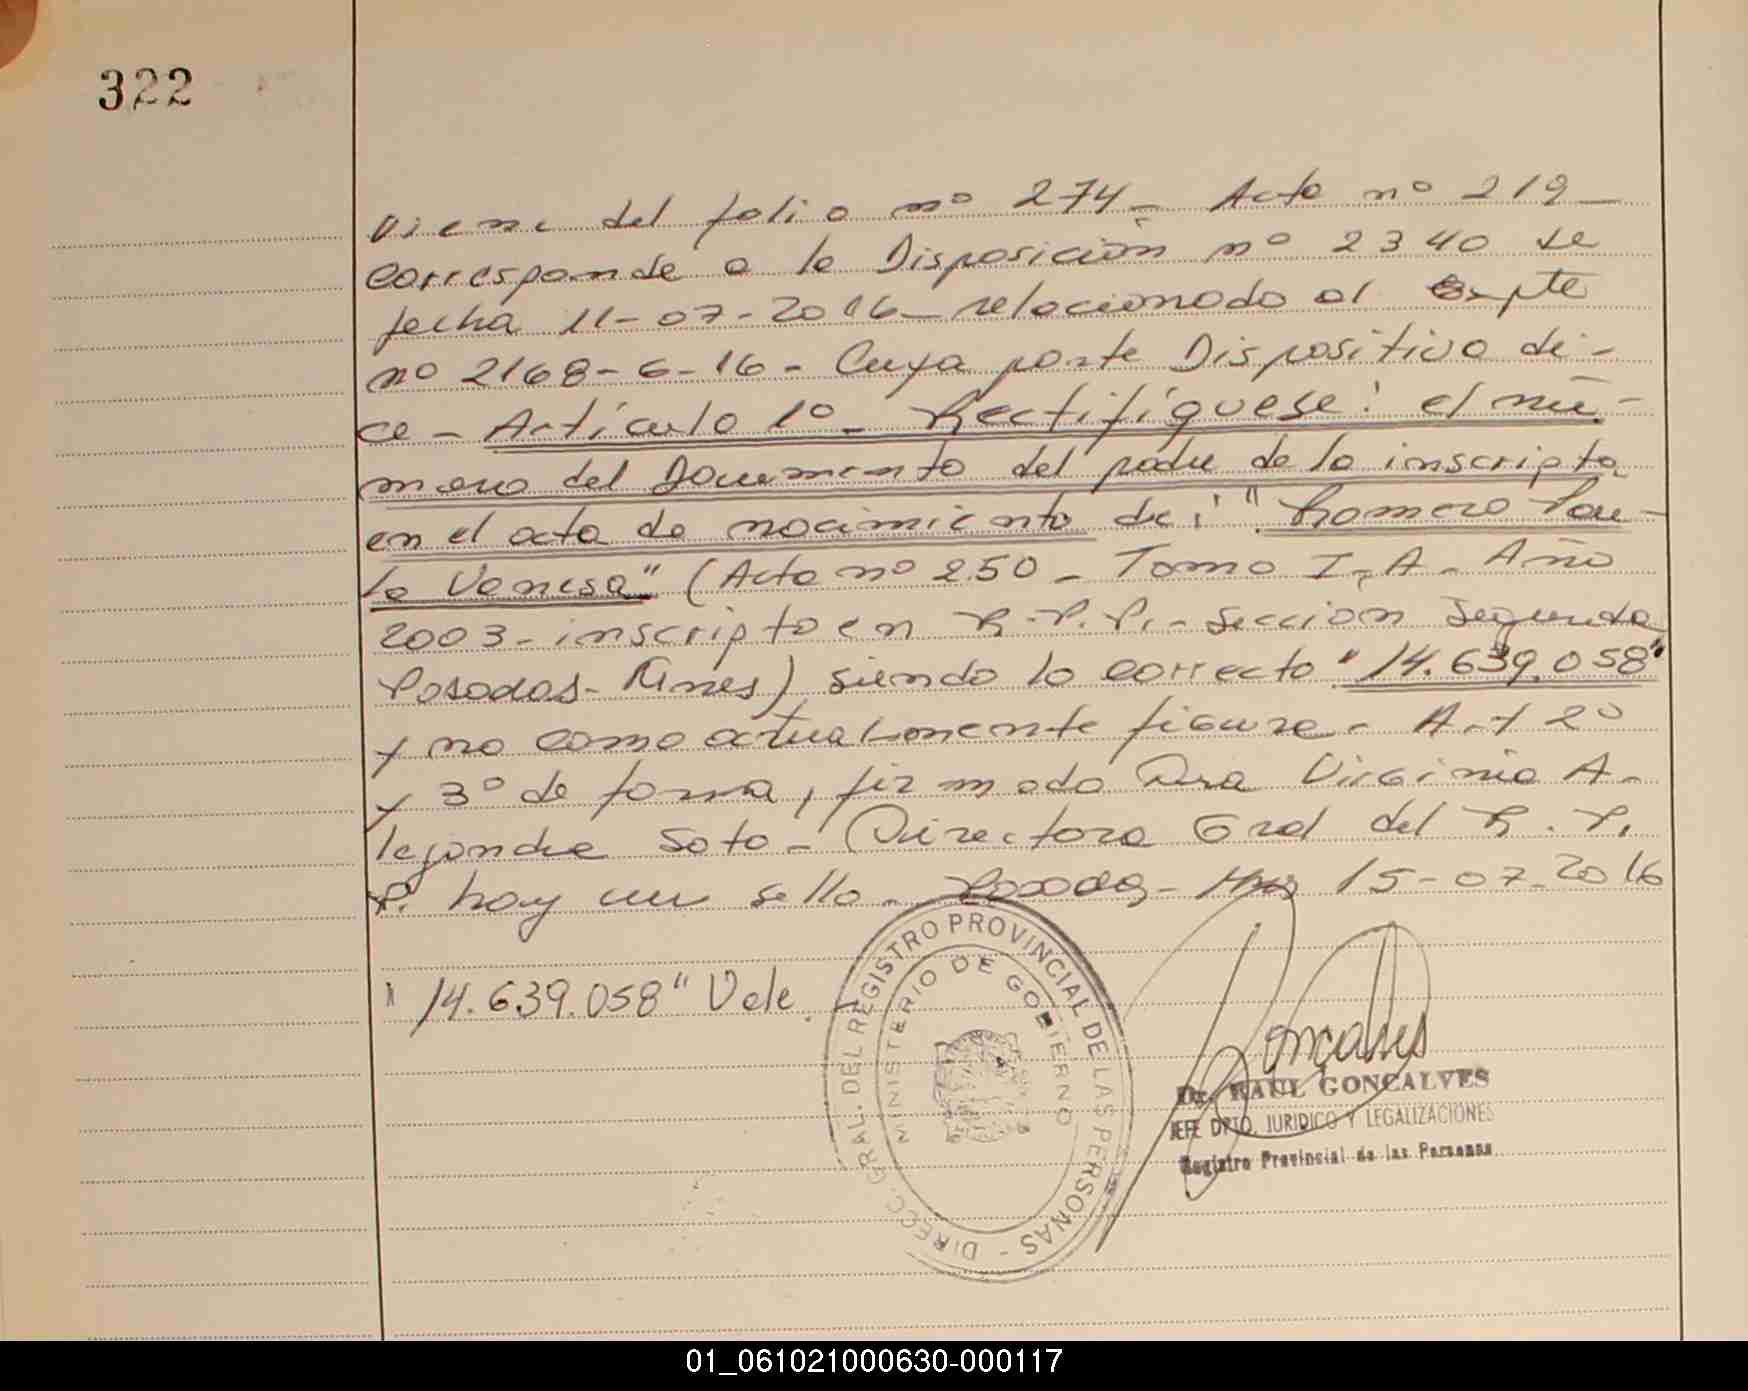 322
Viene del folio nº 274 - Acta nº 219 -
corresponde a la Disposición nº 2340 de
fecha 11-07-2016 - relacionado al Expte
nº 2168-6-16 - Cuya parte Dispositivo di-
ce - Artículo 1º - Rectifíquese: el nú-
mero del Documento del padre de la inscripta
en el acta de nacimiento de: "Romero Pau-
la Vanesa" (Acta nº 250 - Tomo I-A - Año
2003 - inscripta en R.P.P. - Sección Segunda
Posadas - Mnes) siendo lo correcto "14.639.058"
y no como actualmente figura - Art 2º
y 3º de forma, firmado Dra Virginia A-
lejandra Soto - Directora Gral del R.P.
P. hay un sello - Posadas - Mnes 15-07-2016
"14.639.058" Vale.
DIREC. GRAL. DEL REGISTRO PROVINCIAL DE LAS PERSONAS -
MINISTERIO DE GOBIERNO
Goncalves
Dr. RAUL GONCALVES
JEFE DPTO. JURIDICO Y LEGALIZACIONES
Registro Provincial de las Personas
01_061021000630-000117